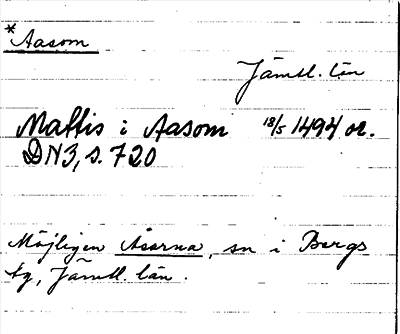 *Aasom
Jämtl. län
Mattis i Aasom 18/5 1494 or.
DN3, s. 720
Möjligen Åsarna, sn i Bergs
tg, Jämtl. län.